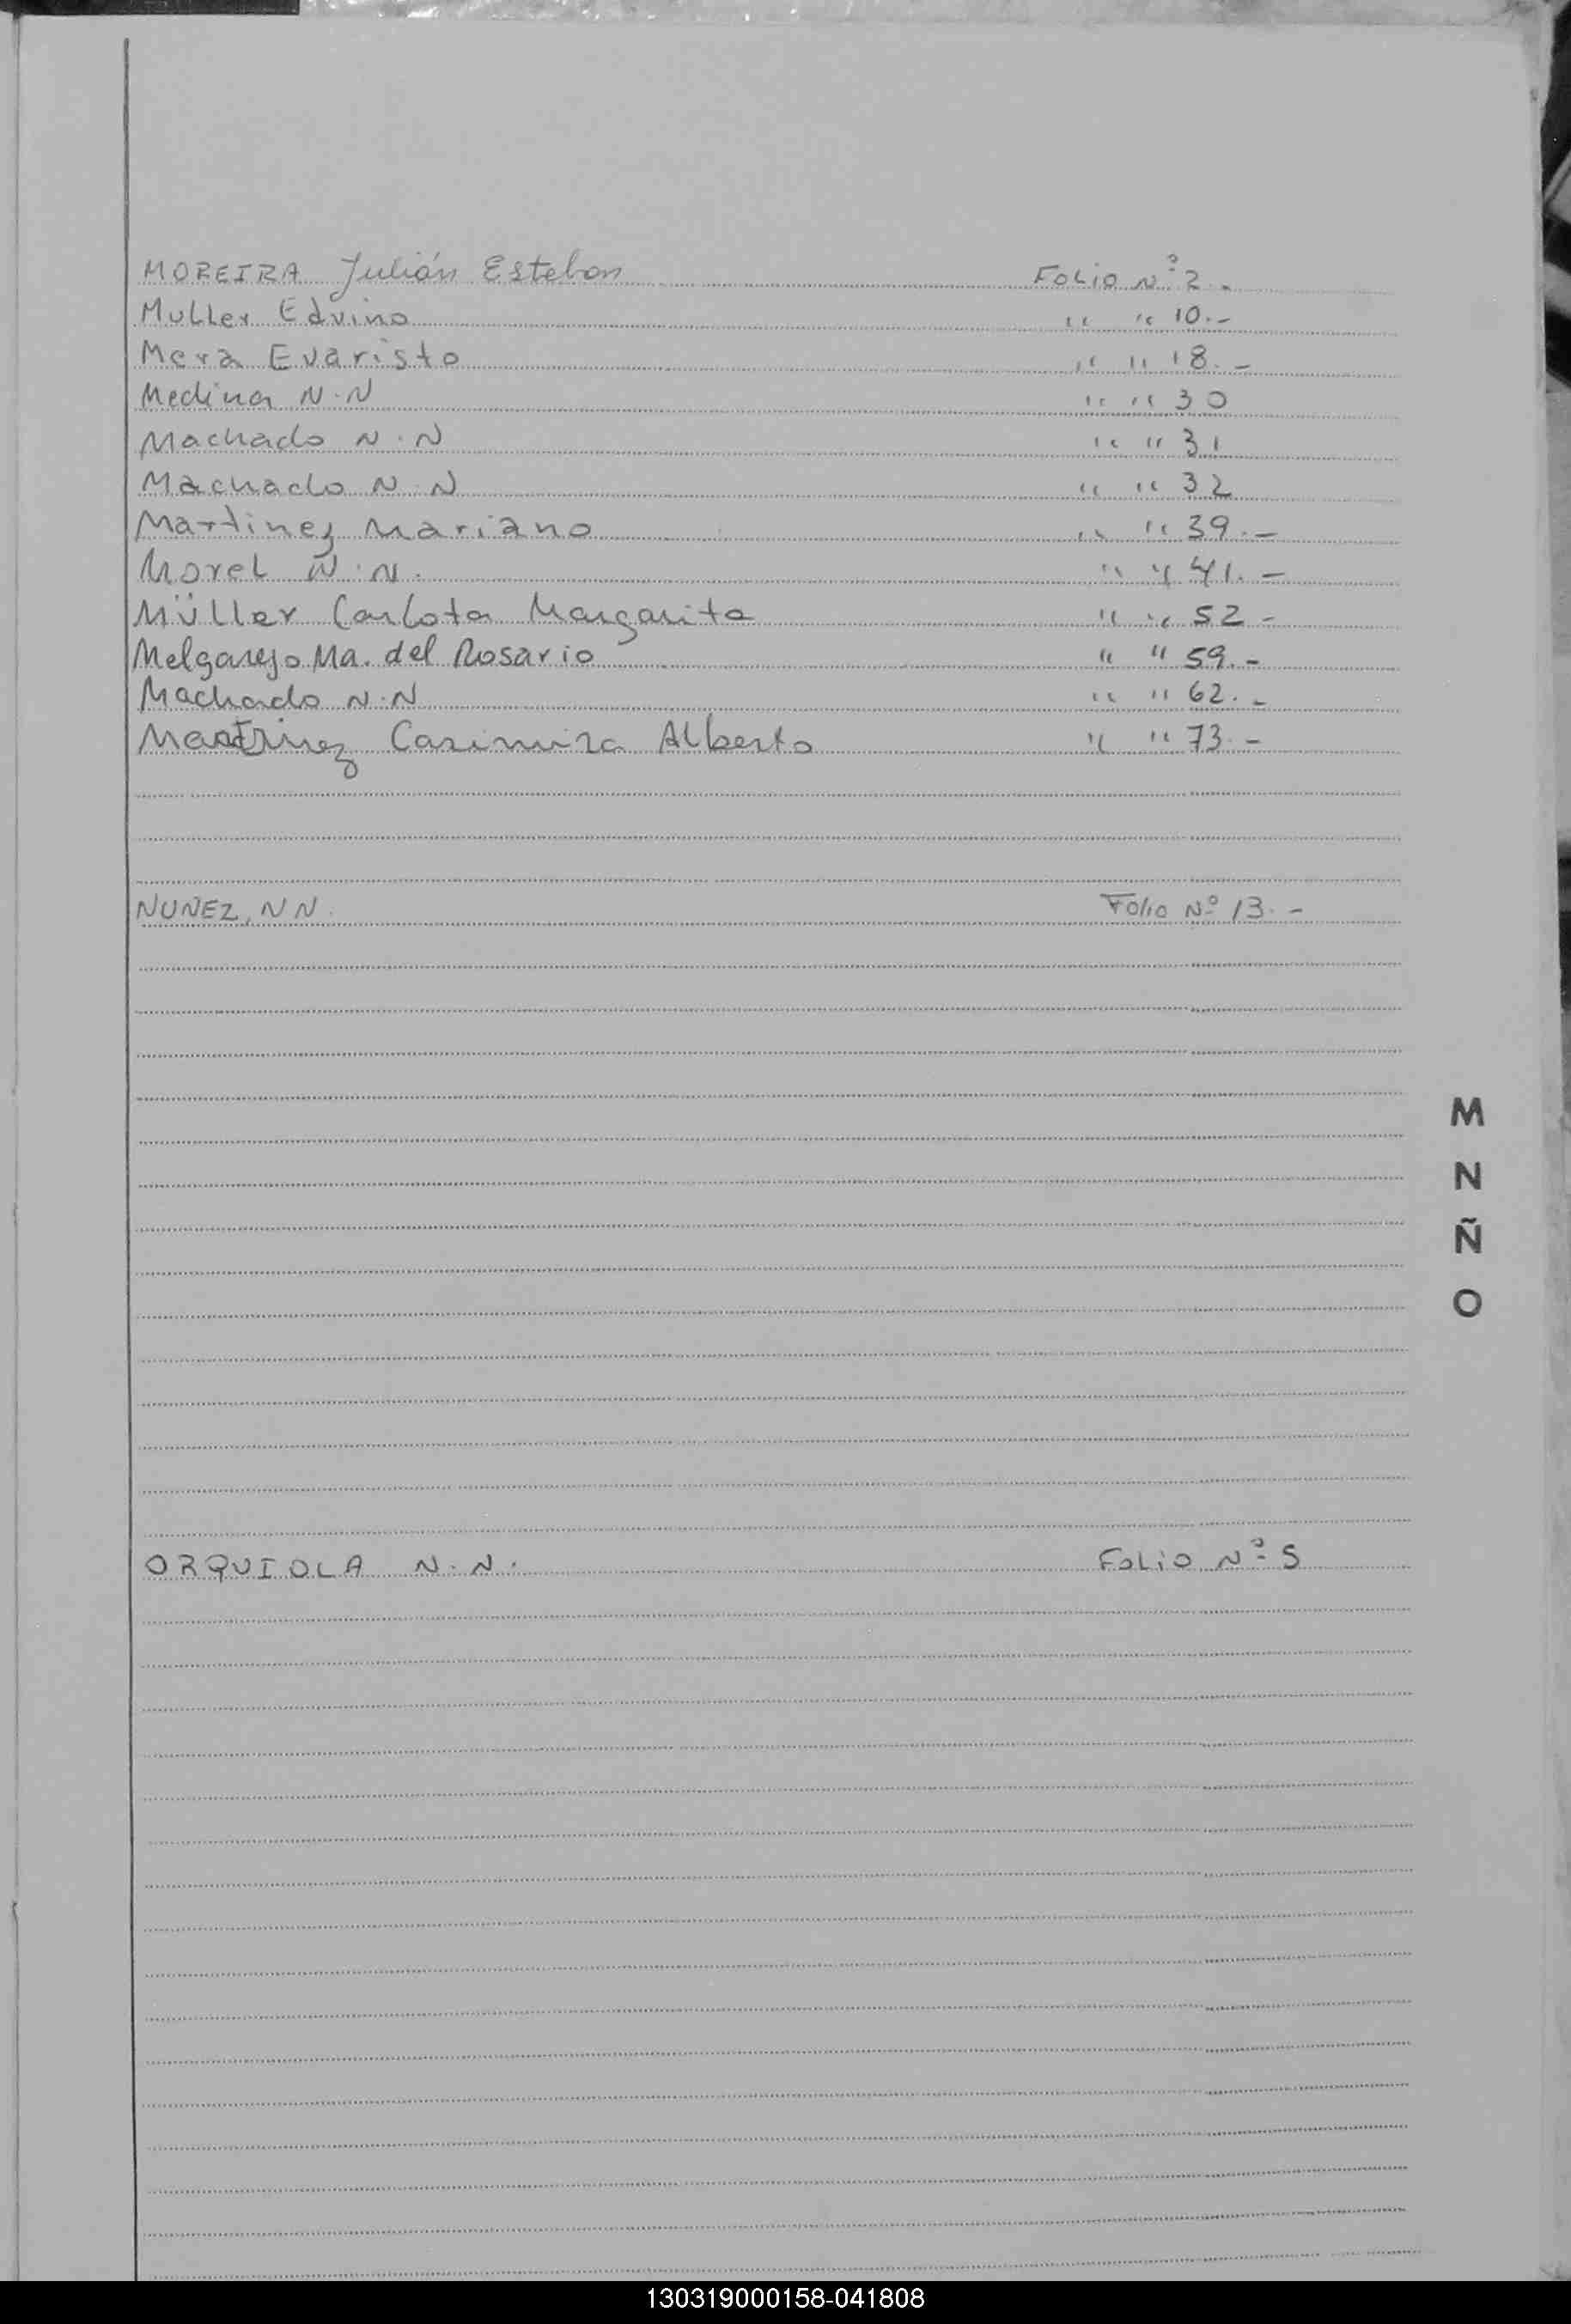 MOREIRA Julián Esteban Folio Nº 2.
Muller Edvino " " 10.-
Mera Evaristo " " 18.-
Medina N.N " " 30
Machado N.N " " 31
Machado N.N " " 32
Martinez Mariano " " 39.-
Morel N.N. " " 41.-
Müller Carlota Margarita " " 52-
Melgarejo Ma. del Rosario " " 59.-
Machado N.N " " 62.-
Martinez Alberto " " 73.-
NUÑEZ, NN. Folio Nº 13.-
M
N
Ñ
O
ORQUIOLA N.N. Folio Nº 5
130319000158-041808